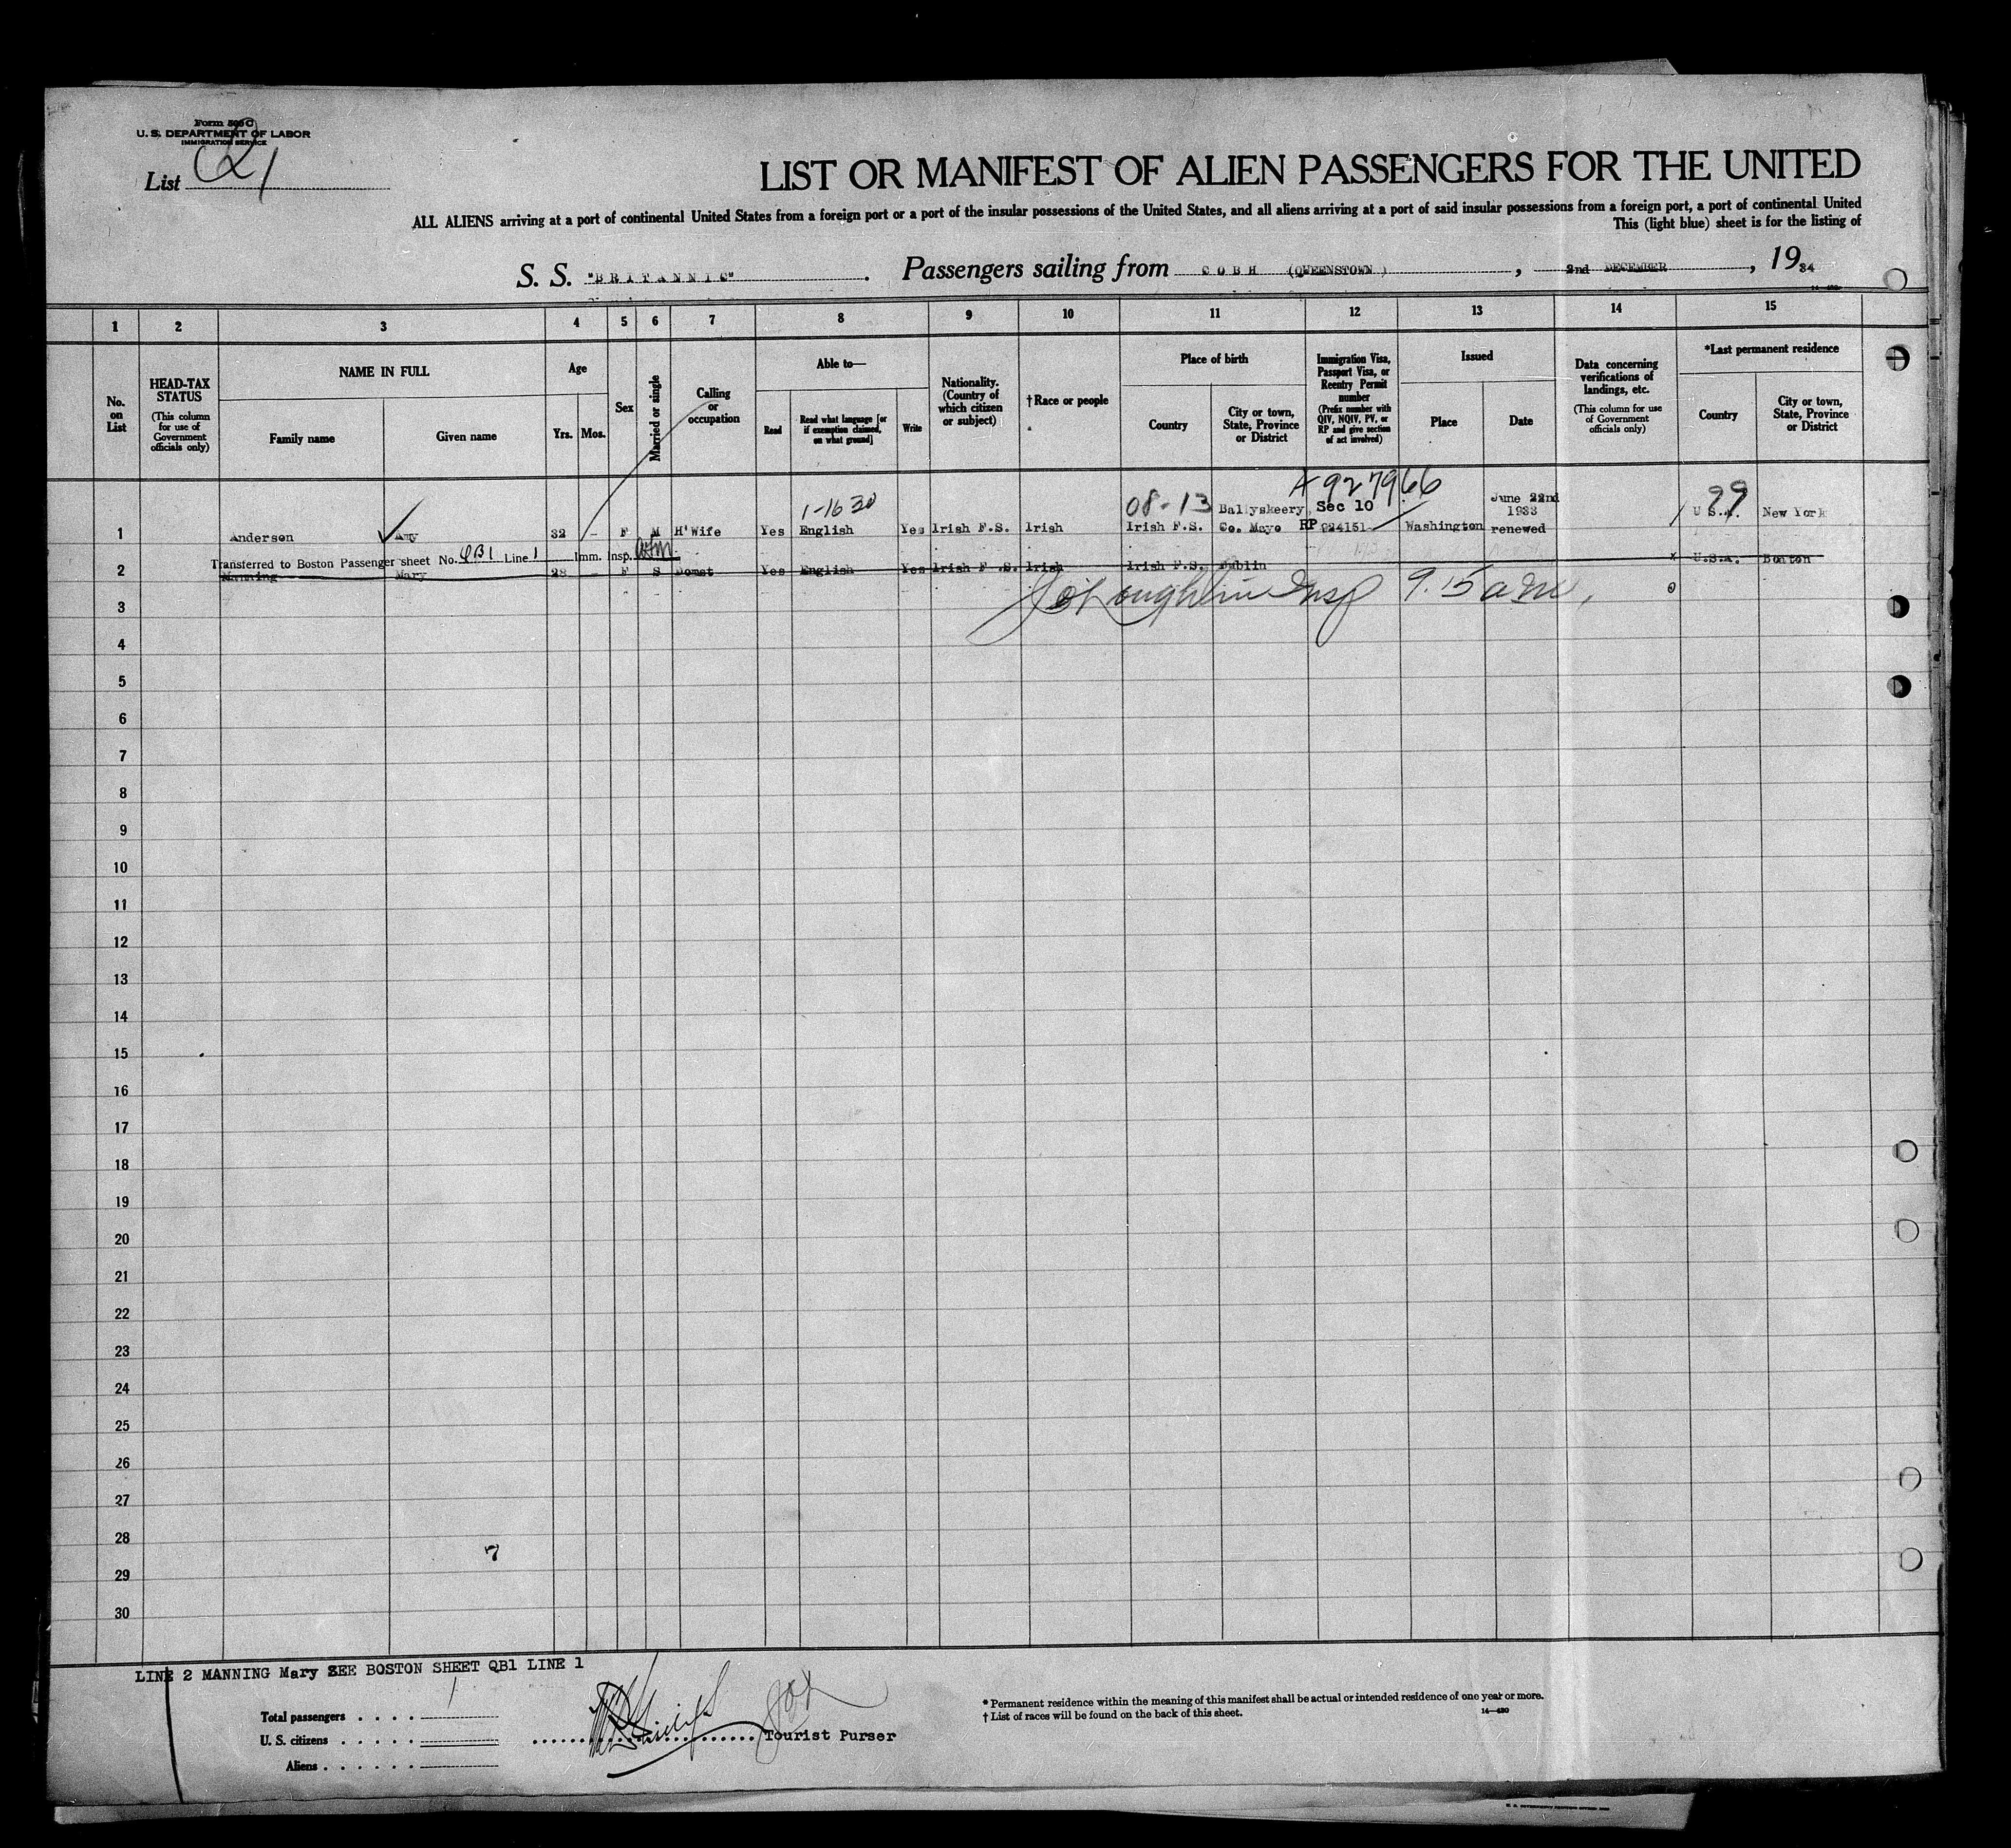 Form 500 C
U. S. DEPARTMENT OF LABOR
IMMIGRATION SERVICE
List Q1
LIST OR MANIFEST OF ALIEN PASSENGERS FOR THE UNITED
ALL ALIENS arriving at a port of continental United States from a foreign port or a port of the insular possessions of the United States, and all aliens arriving at a port of said insular possessions from a foreign port, a port of continental United
This (light blue) sheet is for the listing of
S. S. "BRITANNIC". Passengers sailing from COBH (QUEENSTOWN), 2nd DECEMBER, 1934
1 2 3 4 5 6 7 8 9 10 11 12 13 14 15
No. on List
HEAD-TAX STATUS
(This column for use of Government officials only)
NAME IN FULL
Family name
Given name
Age
Yrs. Mos.
Sex
Married or single
Calling or occupation
Able to—
Read
Read what language [or if exemption claimed, on what ground]
Write
Nationality. (Country of which citizen or subject)
†Race or people
Place of birth
Country
City or town, State, Province or District
Immigration Visa, Passport Visa, or Reentry Permit number
(Prefix number with QIV, NQIV, PV, or RP and give section of act involved)
Issued
Place
Date
Data concerning verifications of landings, etc.
(This column for use of Government officials only)
*Last permanent residence
Country
City or town, State, Province or District
A 927966
1-16 30 08-13 Ballyskeery, Sec 10 June 22nd 1933 99
1 Anderson Amy 32 - F M H'Wife Yes English Yes Irish F.S. Irish Irish F.S. Co. Mayo RP 924151 Washington renewed U.S.A. New York
Transferred to Boston Passenger sheet No. QB1 Line 1 Imm. Insp.
2 Manning Mary 28 - F S Domst Yes English Yes Irish F.S. Irish Irish F.S. Dublin x U.S.A. Boston
3 J O'Loughlin Insp 9.15 am,
4
5
6
7
8
9
10
11
12
13
14
15
16
17
18
19
20
21
22
23
24
25
26
27
28
7
29
30
LINE 2 MANNING Mary SEE BOSTON SHEET QB1 LINE 1
Total passengers . . . . 1
U. S. citizens . . . . .
Aliens . . . . . .
Tourist Purser
* Permanent residence within the meaning of this manifest shall be actual or intended residence of one year or more.
† List of races will be found on the back of this sheet.
14—430